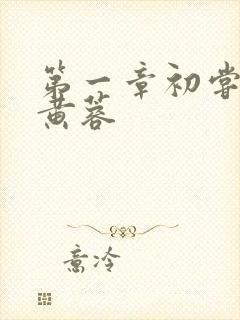 第一章初尝
黄蓉
意冷